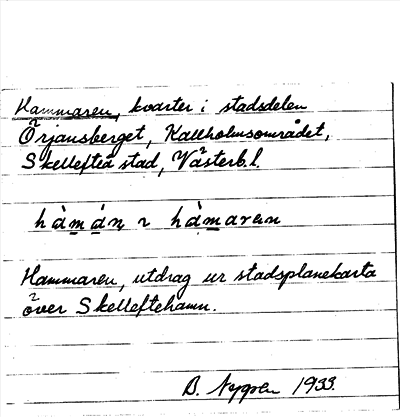 Hammaren, kvarter i stadsdelen
Örjansberget, Kallholmsområdet,
Skellefteå stad, Västerb. l.
hàmán ɿ hàmaren
Hammaren, utdrag ur stadsplanekarta
över Skelleftehamn.
B. Nygren 1933.